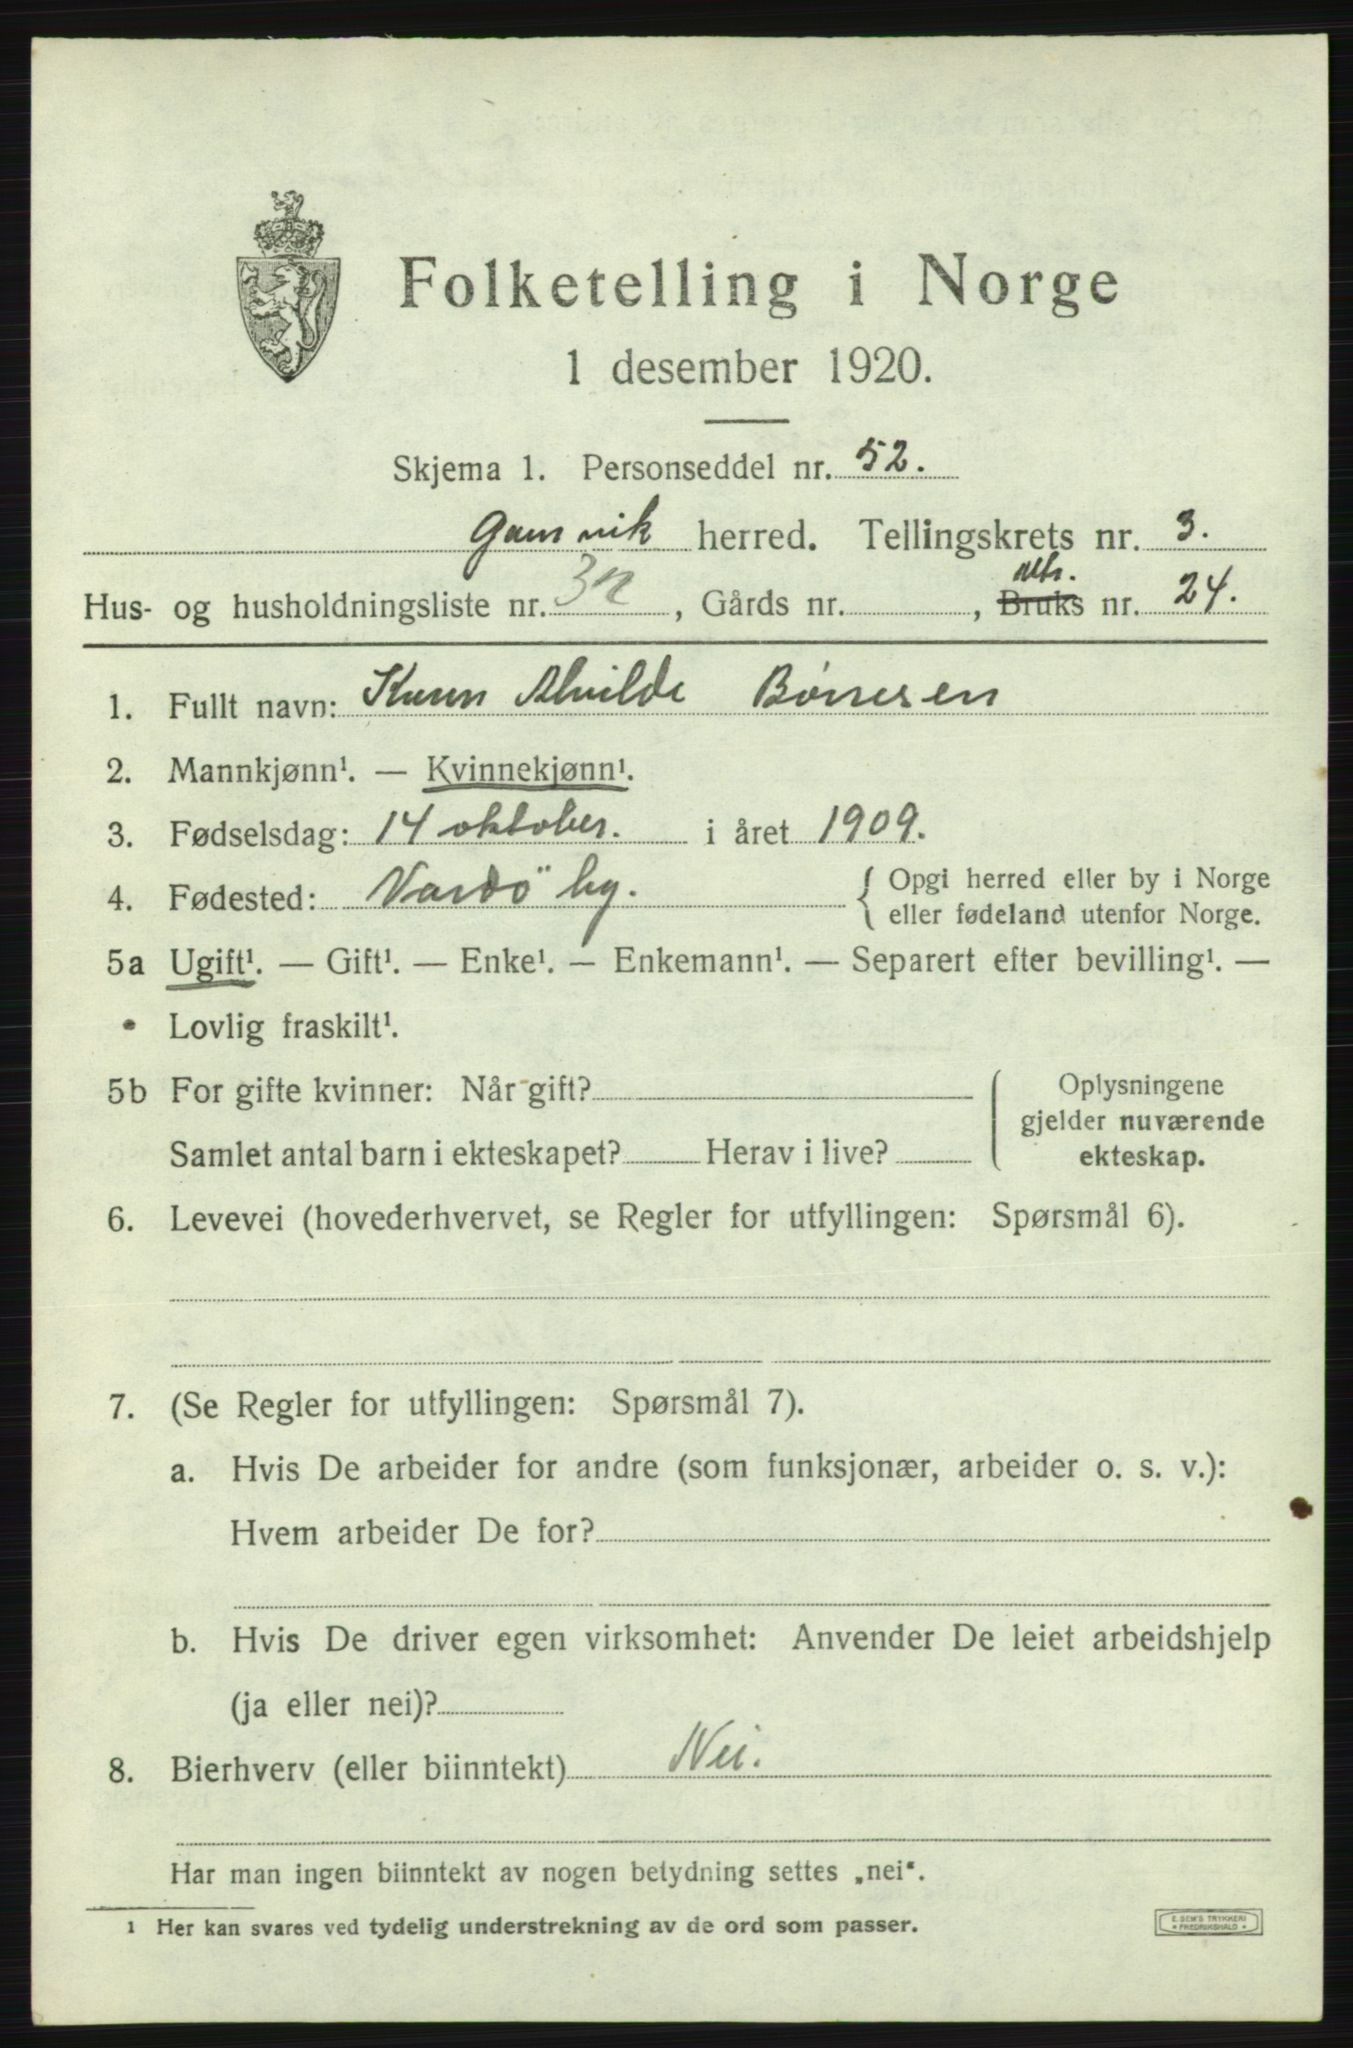 Folketelling i Norge
1 desember 1920.
Skjema 1. Personseddel nr. 52.
Gamvik herred. Tellingskrets nr. 3.
Mtr.
Hus- og husholdningsliste nr. 32, Gårds nr. , Bruks nr. 24.
1. Fullt navn: Alvilde Børresen
2. Mannkjønn¹. — Kvinnekjønn¹.
3. Fødselsdag: 14 oktober. i året 1909.
4. Fødested: Vardö by. { Opgi herred eller by i Norge
eller fødeland utenfor Norge.
5a Ugift¹. — Gift¹. — Enke¹. — Enkemann¹. — Separert efter bevilling¹. —
Lovlig fraskilt¹.
5b For gifte kvinner: Når gift? Oplysningene
gjelder nuværende
Samlet antal barn i ekteskapet? Herav i live? ekteskap.
6. Levevei (hovederhvervet, se Regler for utfyllingen: Spørsmål 6).
7. (Se Regler for utfyllingen: Spørsmål 7).
a. Hvis De arbeider for andre (som funksjonær, arbeider o. s. v.):
Hvem arbeider De for?
b. Hvis De driver egen virksomhet: Anvender De leiet arbeidshjelp
(ja eller nei)?
8. Bierhverv (eller biinntekt) Nei.
Har man ingen biinntekt av nogen betydning settes „nei“.
1 Her kan svares ved tydelig understrekning av de ord som passer.
E. SEM'S TRYKKERI
FREDRIKSHALD